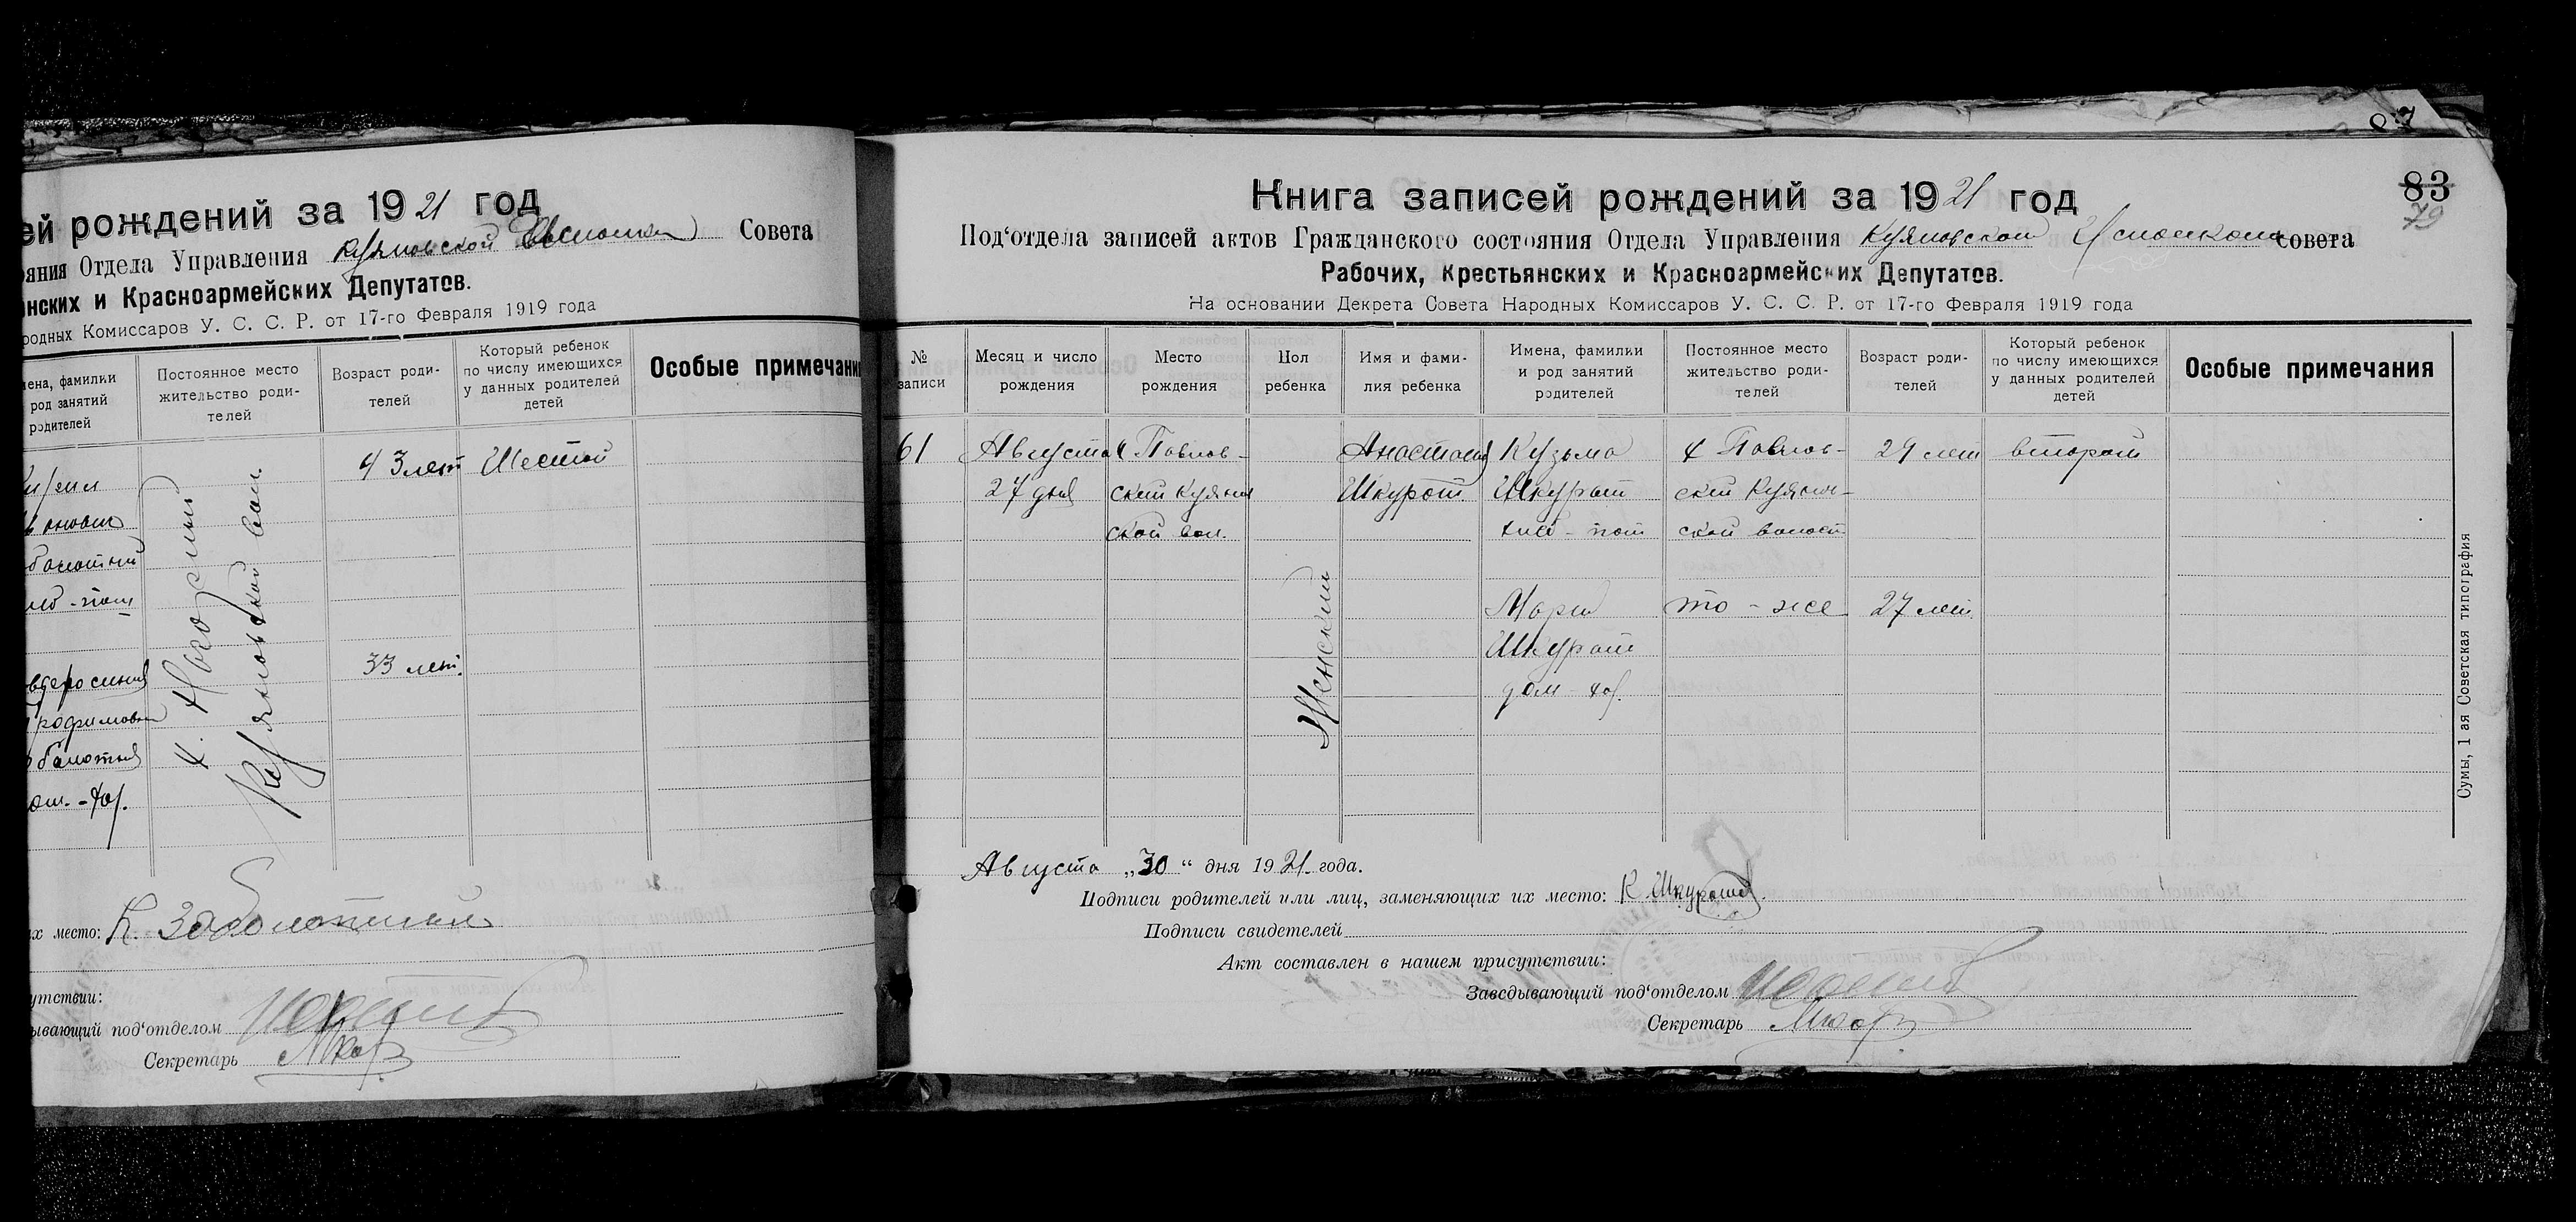 ей рождений за 1921 год
ояния Отдела Управления Куяновской Совета
нских и Красноармейских Депутатов.
родных Комиссаров У. С. С. Р. от 17-го Февраля 1919 года
мена, фамилии
род занятий
родителей
Постоянное место
жительство роди-
телей
Возраст роди-
телей
Который ребенок
по числу имеющихся
у данных родителей
детей
Особые примечани
43 лет
Шестой
33 лет.
их место: К. Заболотный
утствии:
ывающий под‘отделом
Секретарь
83
79
Книга записей рождений за 1921 год
Под‘отдела записей актов Гражданского состояния Отдела Управления Куяновской Исполкома Совета
Рабочих, Крестьянских и Красноармейских Депутатов.
На основании Декрета Совета Народных Комиссаров У. С. С. Р. от 17-го Февраля 1919 года
№
записи
Месяц и число
рождения
Место
рождения
Пол
ребенка
Имя и фами-
лия ребенка
Имена, фамилии
и род занятий
родителей
Постоянное место
жительство роди-
телей
Возраст роди-
телей
Который ребенок
по числу имеющихся
у данных родителей
детей
Особые примечания
61
Августа
27 дня
х Павлов-
ский Куянов
ской вол.
Женский
Анастасия
Шкурат
Кузьма
Шкурат
хлеб-паш
х Павлов-
ский Куянов-
ской волост
29 лет
второй
Мария
Шкурат
дом-хоз.
то-же
27 лет.
Августа „30“ дня 1921 года.
Подписи родителей или лиц, заменяющих их место: К Шкурат
Подписи свидетелей
Акт составлен в нашем присутствии:
Заведывающий под‘отделом
Секретарь
Сумы, 1 ая Советская типография